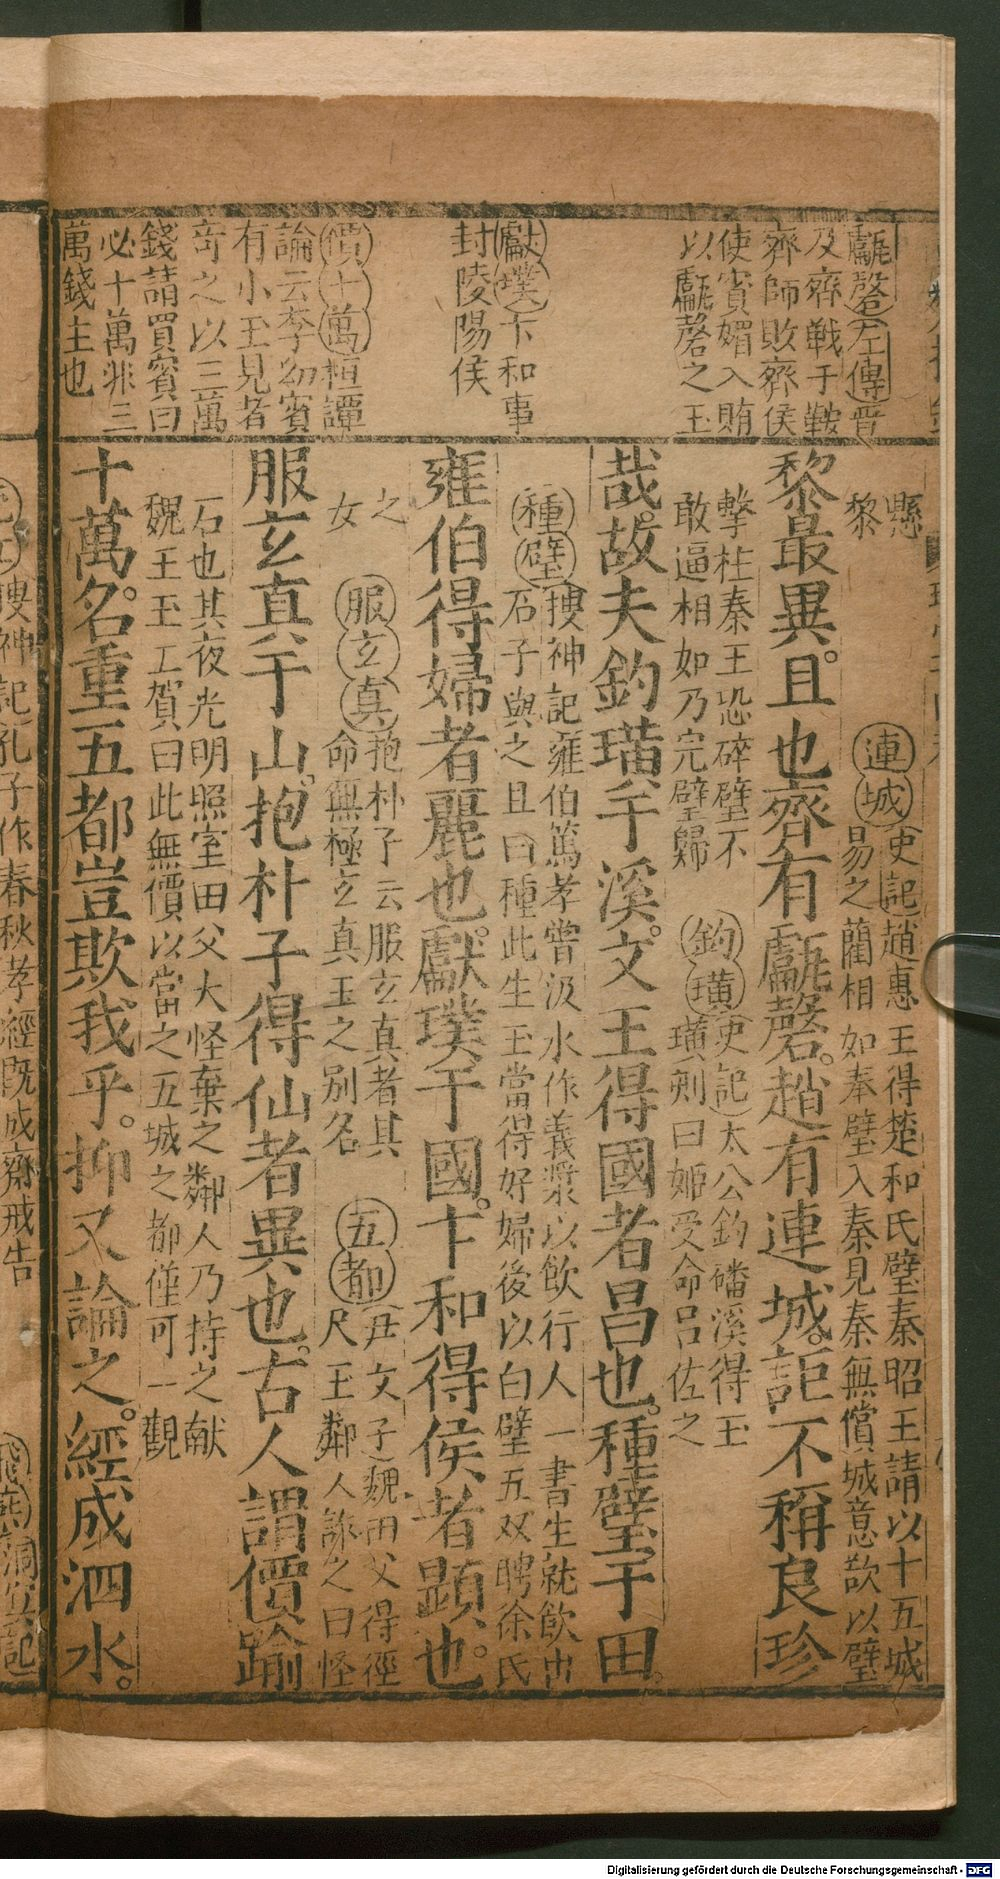 甗磬左傳晋
及齊戰于鞍
齊師敗齊侯
使賓媚入賄
以甗磬之玉
獻璞卞和事
封陵陽侯
價十萬桓譚
論云李幼賓
有小玉見者
奇之以三萬
錢請買賓曰
必十萬非三
萬錢主也
懸
黎
連城史記趙惠王得楚和氏璧秦昭王請以十五城
易之藺相如奉璧入秦見秦無償城意欲以璧
黎最異且也齊有甗磬趙有連城詎不稱良珍
擊柱秦王恐碎璧不
敢逼相如乃完璧歸
釣璜史記太公釣磻溪得玉
璜刻曰姬受命呂佐之
哉故夫釣璜于溪文王得國者昌也種璧于田
種璧搜神記雍伯篤孝嘗汲水作義漿以飲行人一書生就飲出
石子與之且曰種此生玉當得好婦後以白璧五双聘徐氏
雍伯得婦者麗也獻璞于國卞和得侯者顕也
之
女
服玄真抱朴子云服玄真者其
命無極玄真玉之別名
五都尹文子魏田父得徑
尺玉鄰人詠之曰怪
服玄真于山抱朴子得仙者異也古人謂價踰
石也其夜光明照室田父大怪棄之鄰人乃持之献
魏王玉工賀曰此無價以當之五城之都僅可一觀
十萬名重五都豈欺我乎抑又論之經成泗水
搜神記孔子作春秋孝經既成齋戒告
飛燕洞冥記
Digitalisierung gefördert durch die Deutsche Forschungsgemeinschaft - DFG